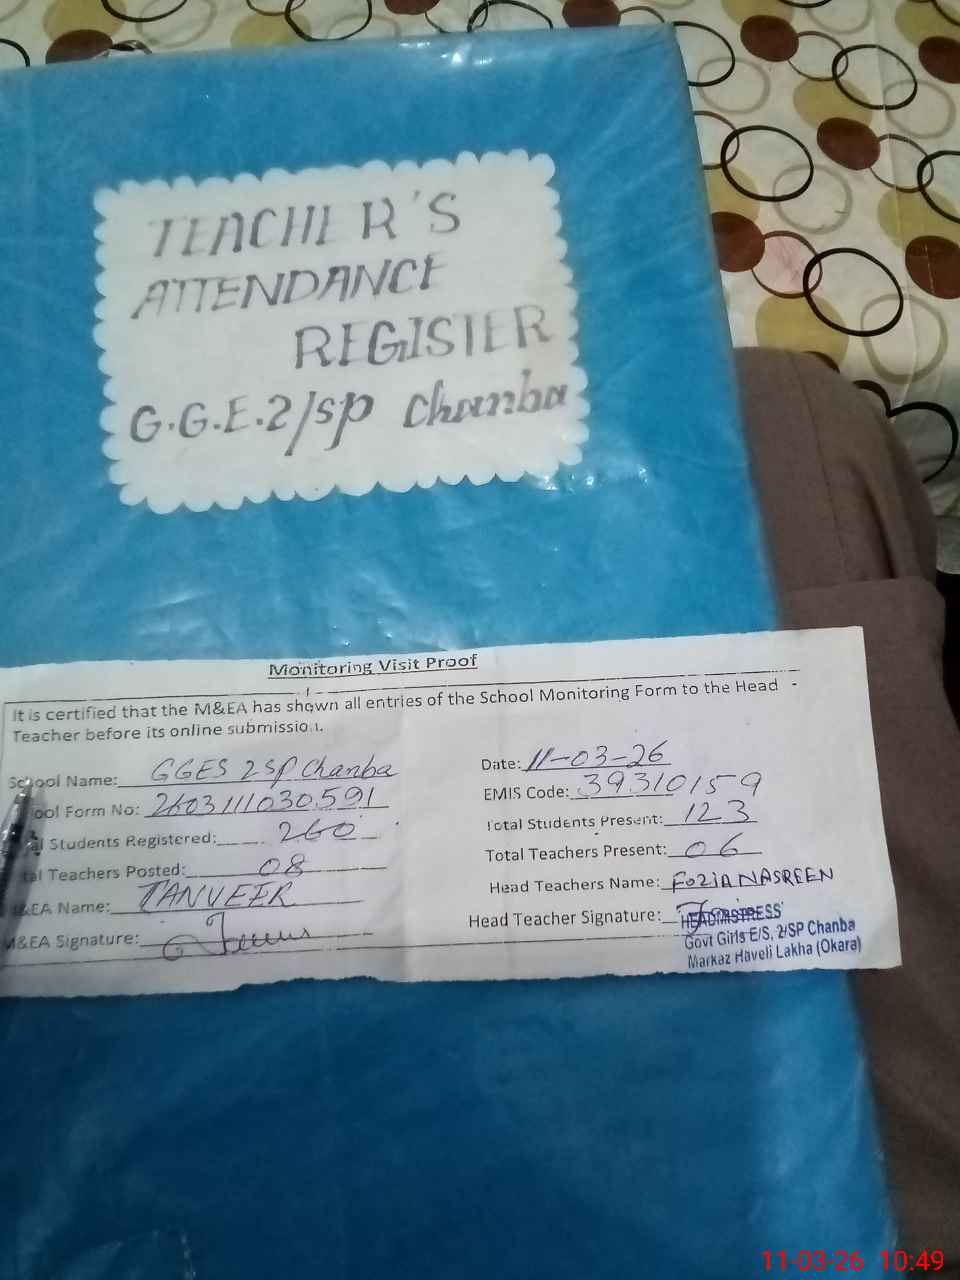 TEACHER'S
ATTENDANCE
REGISTER
G.G.E.2/SP Chanba
Monitoring Visit Proof
It is certified that the M&EA has shown all entries of the School Monitoring Form to the Head
Teacher before its online submission.
School Name: GGES 2SP Chanba
Date: 11-03-26
ool Form No: 2603111030591
EMIS Code: 39310159
al Students Registered: 260
Total Students Present: 123
tal Teachers Posted: 08
Total Teachers Present: 06
M&EA Name: TANVEER
Head Teachers Name: FOZIA NASREEN
M&EA Signature:
Head Teacher Signature:
HEADMISTRESS
Govt Girls E/S, 2/SP Chanba
Markaz Haveli Lakha (Okara)
11-03-26 10:49